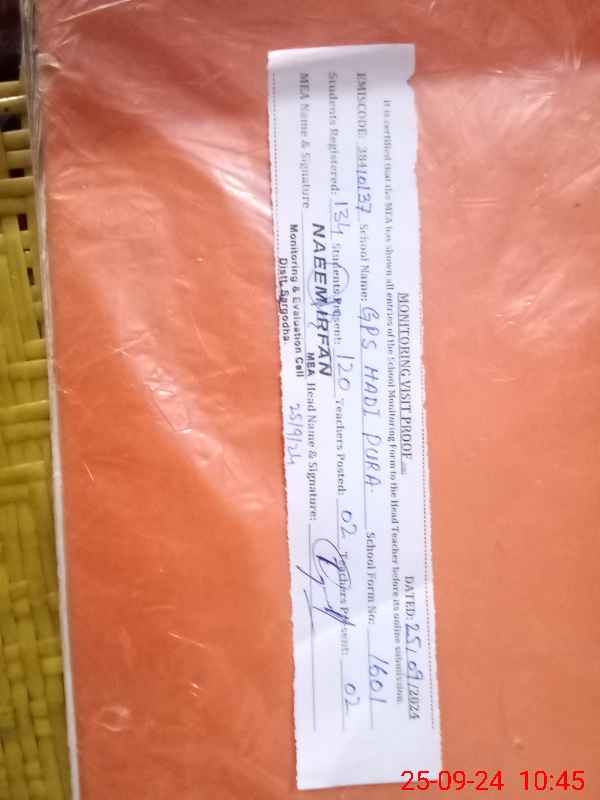 MONITORING VISIT PROOF DATED: 25/09/2024
it is certified that the MEA has shown all entries of the School Monitoring Form to the Head Teacher before its online submission.
EMISCODE: 38410137 School Name: GPS HADI PURA School Form No: 1601
Students Registered: 134 Students Present: 120 Teachers Posted: 02 Teachers Present: 02
MEA Name & Signature NAEEM IRFAN Head Name & Signature:
MEA
Monitoring & Evaluation Cell
Distt. Sargodha.
25/9/24
25-09-24 10:45